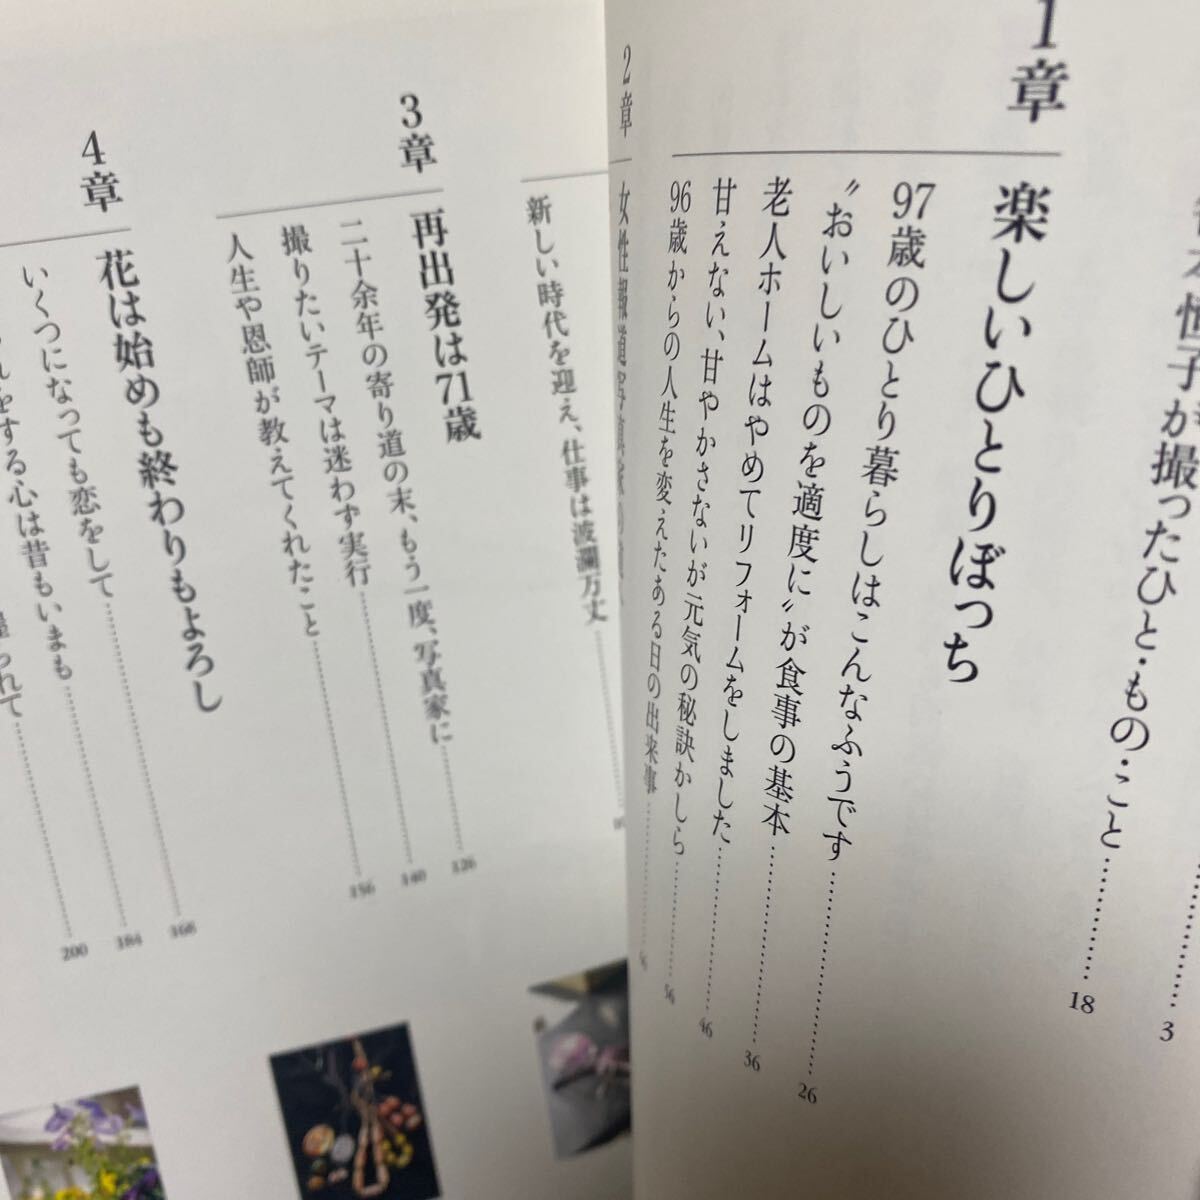 恒子が撮ったひと・もの・こと……… 18
……… 3
1章 楽しいひとりぼっち
97歳のひとり暮らしはこんなふうです……… 26
〝おいしいものを適度に〟が食事の基本……… 36
老人ホームはやめてリフォームをしました……… 46
甘えない、甘やかさないが元気の秘訣かしら……… 56
96歳からの人生を変えたある日の出来事………
2章 女性報道写真家の
新しい時代を迎え、仕事は波瀾万丈………
3章 再出発は71歳
二十余年の寄り道の末、もう一度、写真家に……… 126
撮りたいテーマは迷わず実行……… 140
人生や恩師が教えてくれたこと……… 156
4章 花は始めも終わりもよろし
いくつになっても恋をして……… 166
をする心は昔もいまも……… 184
られて……… 200